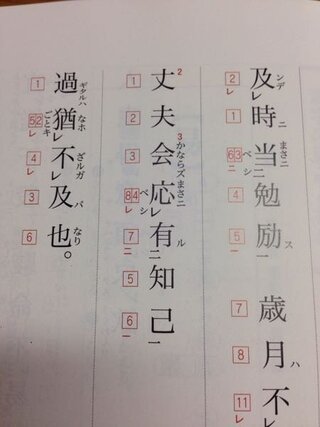 及ンデレ時ニ当まさニベシ二勉励ス一歳月ハ不レ
2レ 1 63二 4 5一 7 8 11レ
丈2夫会3かならズ応まさニベシレ有ル二知己一
1 2 3 84レ 7二 5 6一
過ギタルハ猶なホごとキレ不ざルガレ及バ也なり。
1 52レ 4レ 3 6